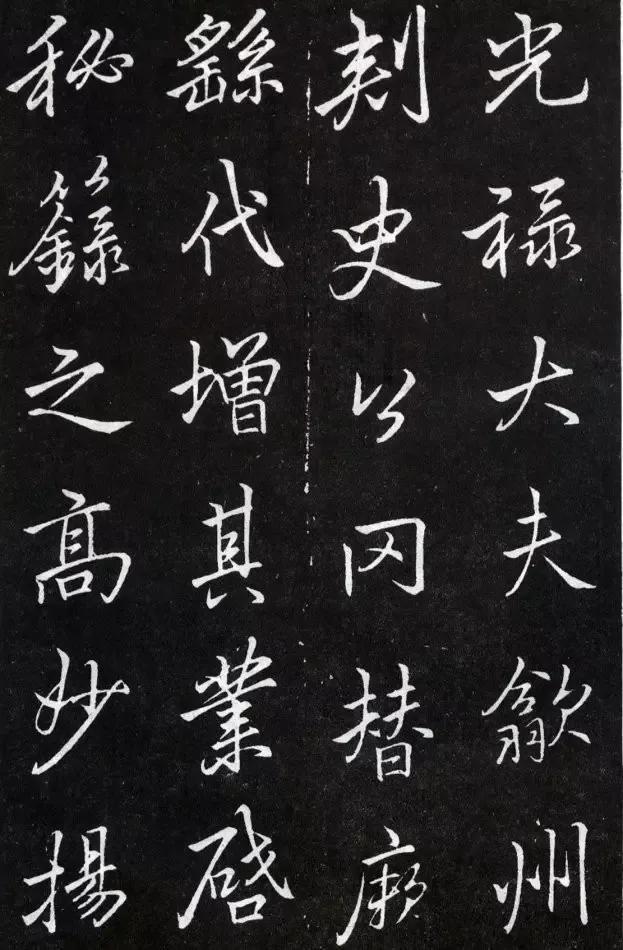 光禄大夫歙州
刺史公罔替厥
繇代增其業啓
秘籙之高妙揚